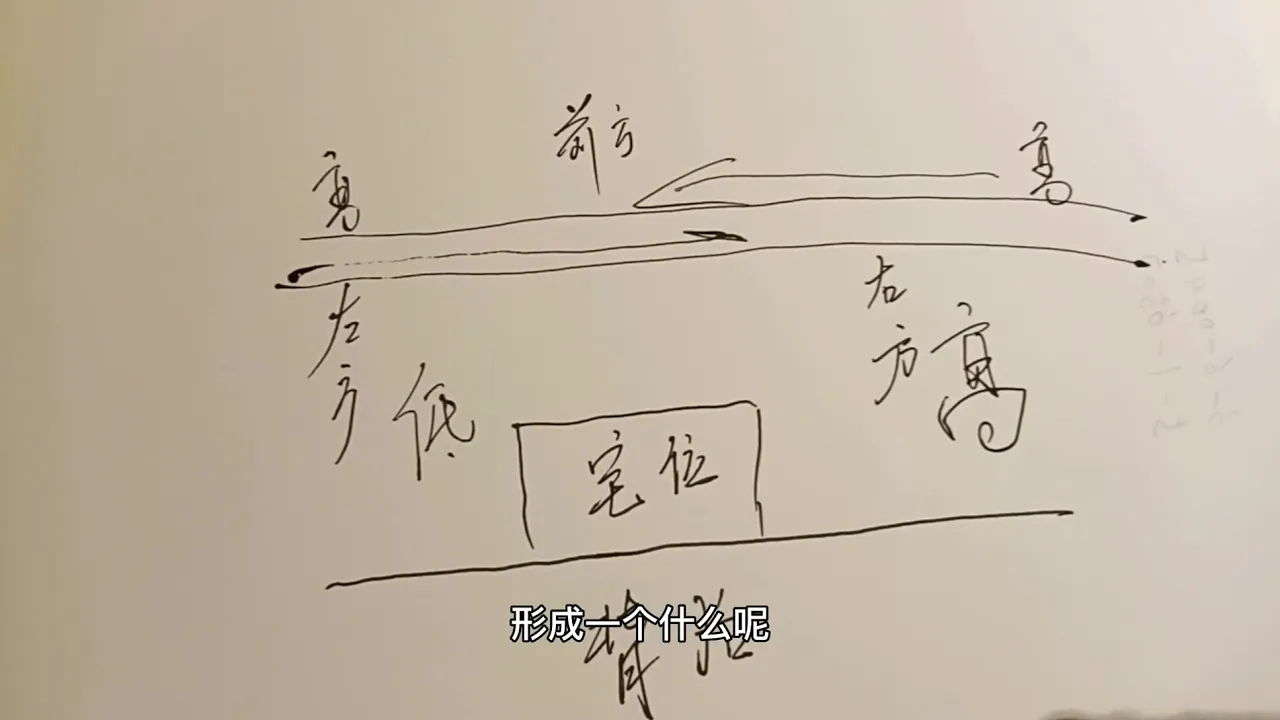 前方
高
高
左方
低
右方
高
宅位
形成一个什么呢